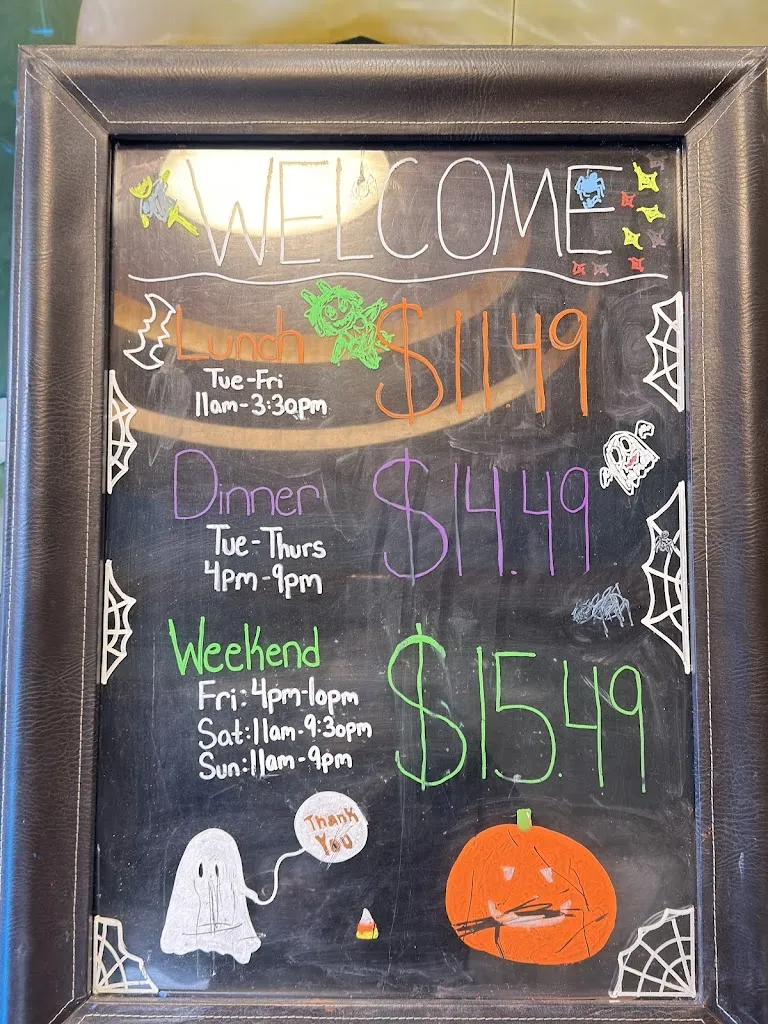 WELCOME
Lunch $11.49
Tue-Fri
11am-3:30pm
Dinner $14.49
Tue-Thurs
4pm-9pm
Weekend $15.49
Fri: 4pm-10pm
Sat: 11am-9:30pm
Sun: 11am-9pm
Thank
You